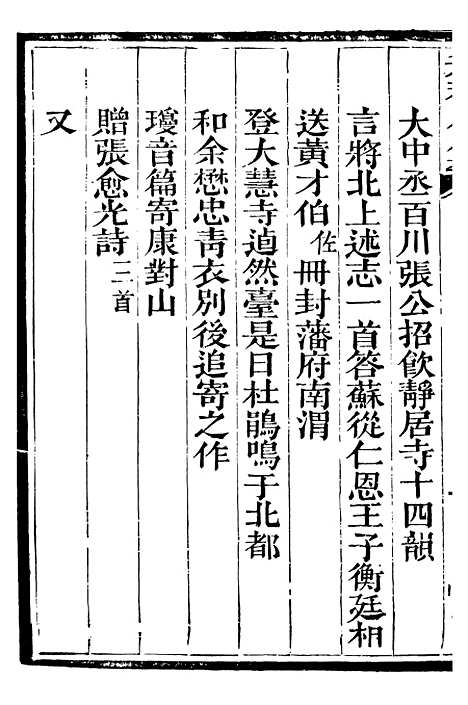 大中丞百川張公招飲靜居寺十四韻
言將北上述志一首答蘇從仁恩王子衡廷相
送黄才伯佐冊封藩府南渭
登大慧寺逌然臺是日杜鵑鳴于北都
和余懋忠靑衣別後追寄之作
瓊音篇寄康對山
贈張愈光詩三首
又